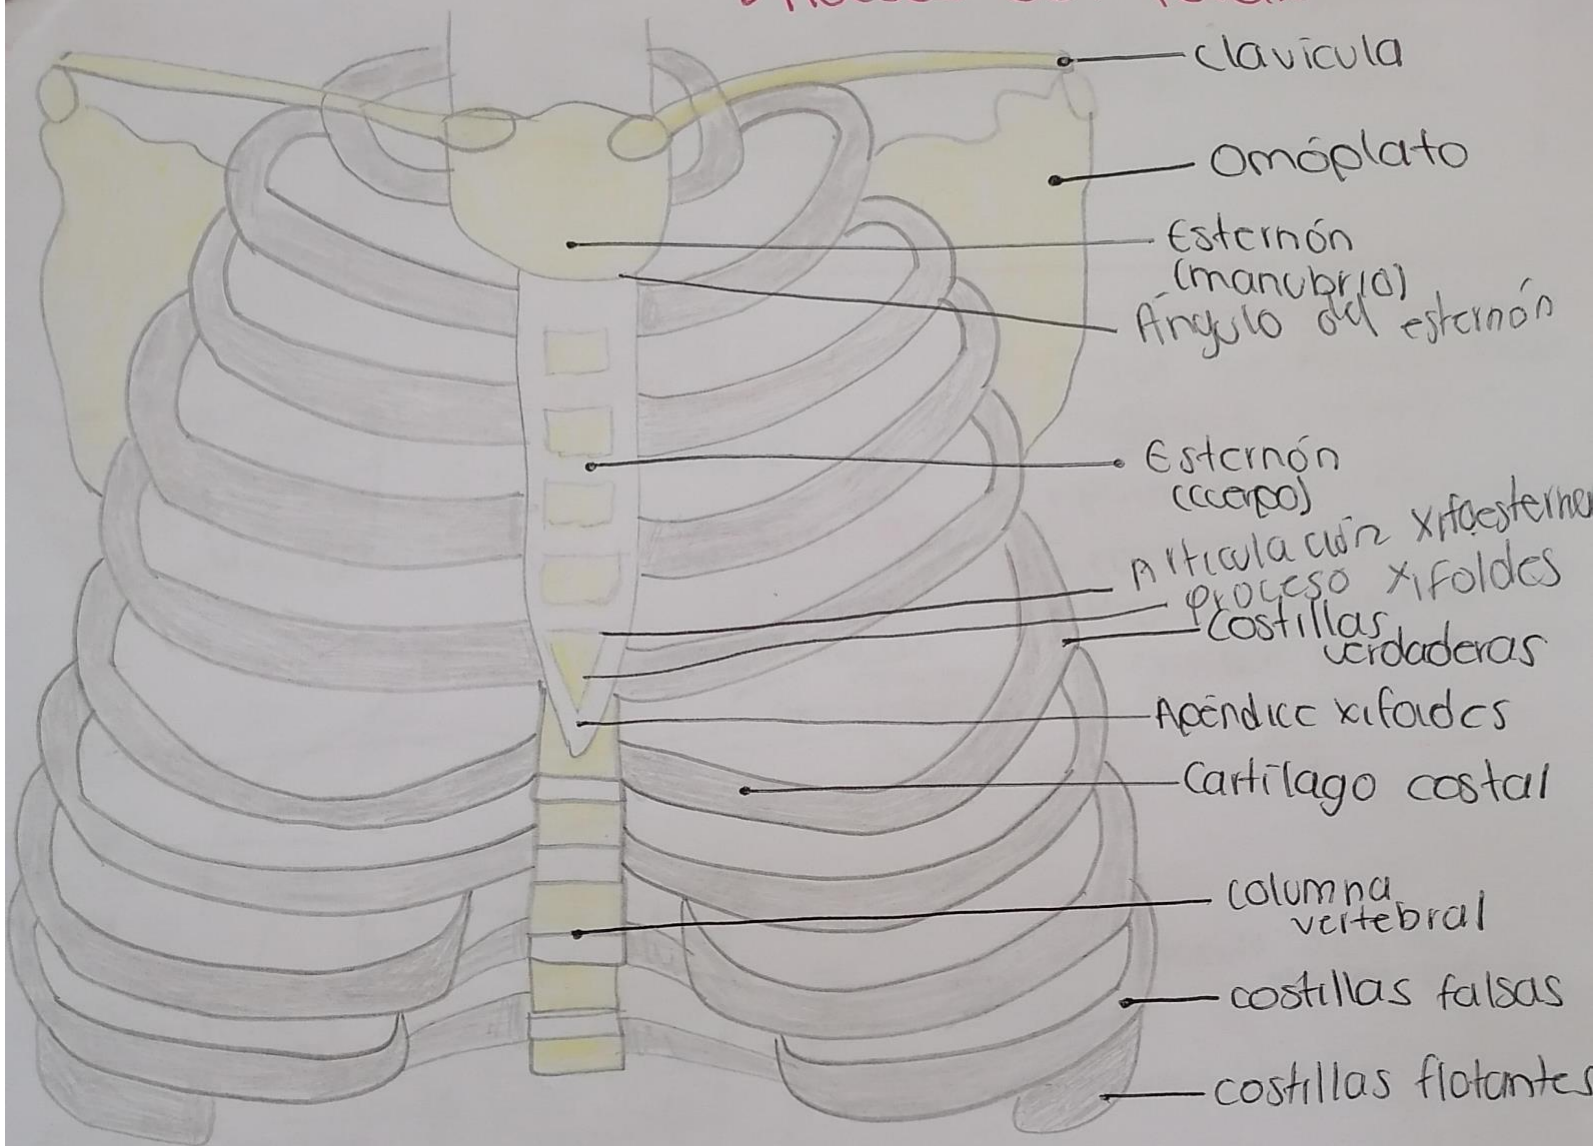 Clavícula
Omóplato
Esternón
(manubrio)
Ángulo del esternón
Esternón
(cuerpo)
Articulación xifoesterna
proceso xifoides
Costillas
verdaderas
Apéndice xifoides
Cartílago costal
columna
vertebral
costillas falsas
costillas flotantes